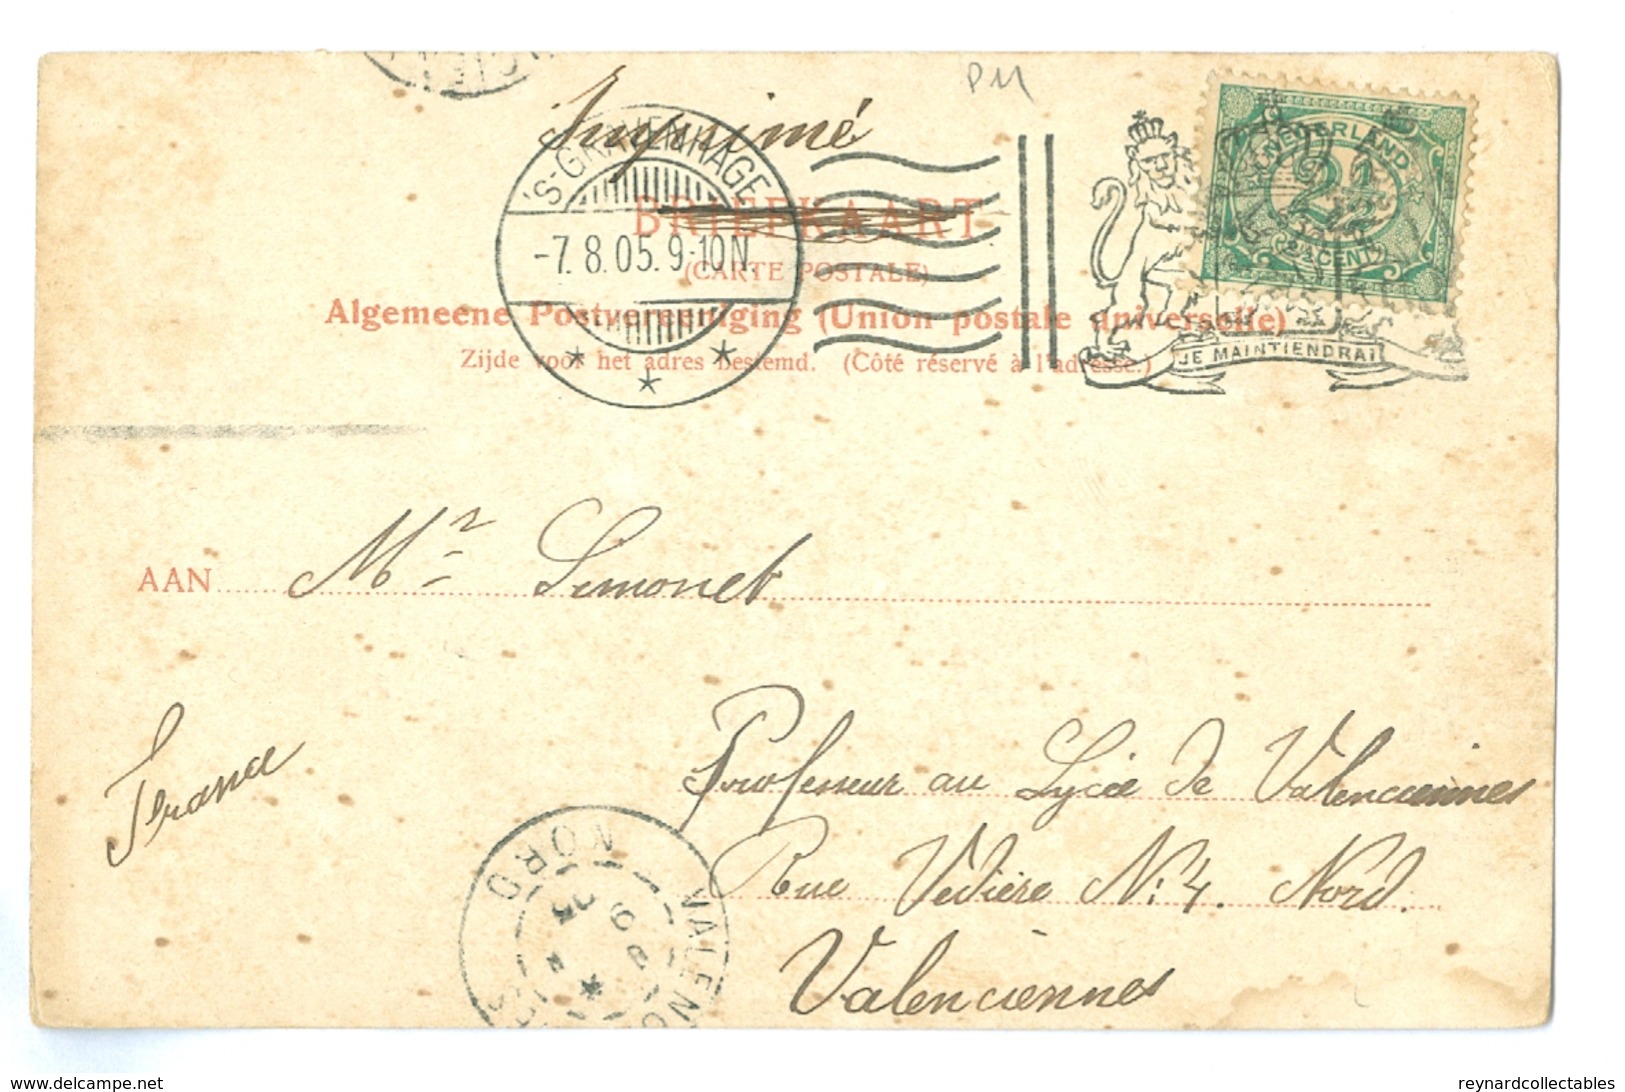 Imprimé
PM
'S-GRAVENHAGE
-7.8.05.9-10N.
NEDERLAND
2½
CENT
BRIEFKAART
(CARTE POSTALE)
Algemeene Postvereeniging (Union postale universelle)
Zijde voor het adres bestemd. (Côté réservé à l'adresse.)
JE MAINTIENDRAI
AAN Mr Simonet
France
Professeur au Lycée de Valenciennes
Rue Védière N:4. Nord.
Valenciennes
VALENC
NORD
delcampe.net
reynardcollectables